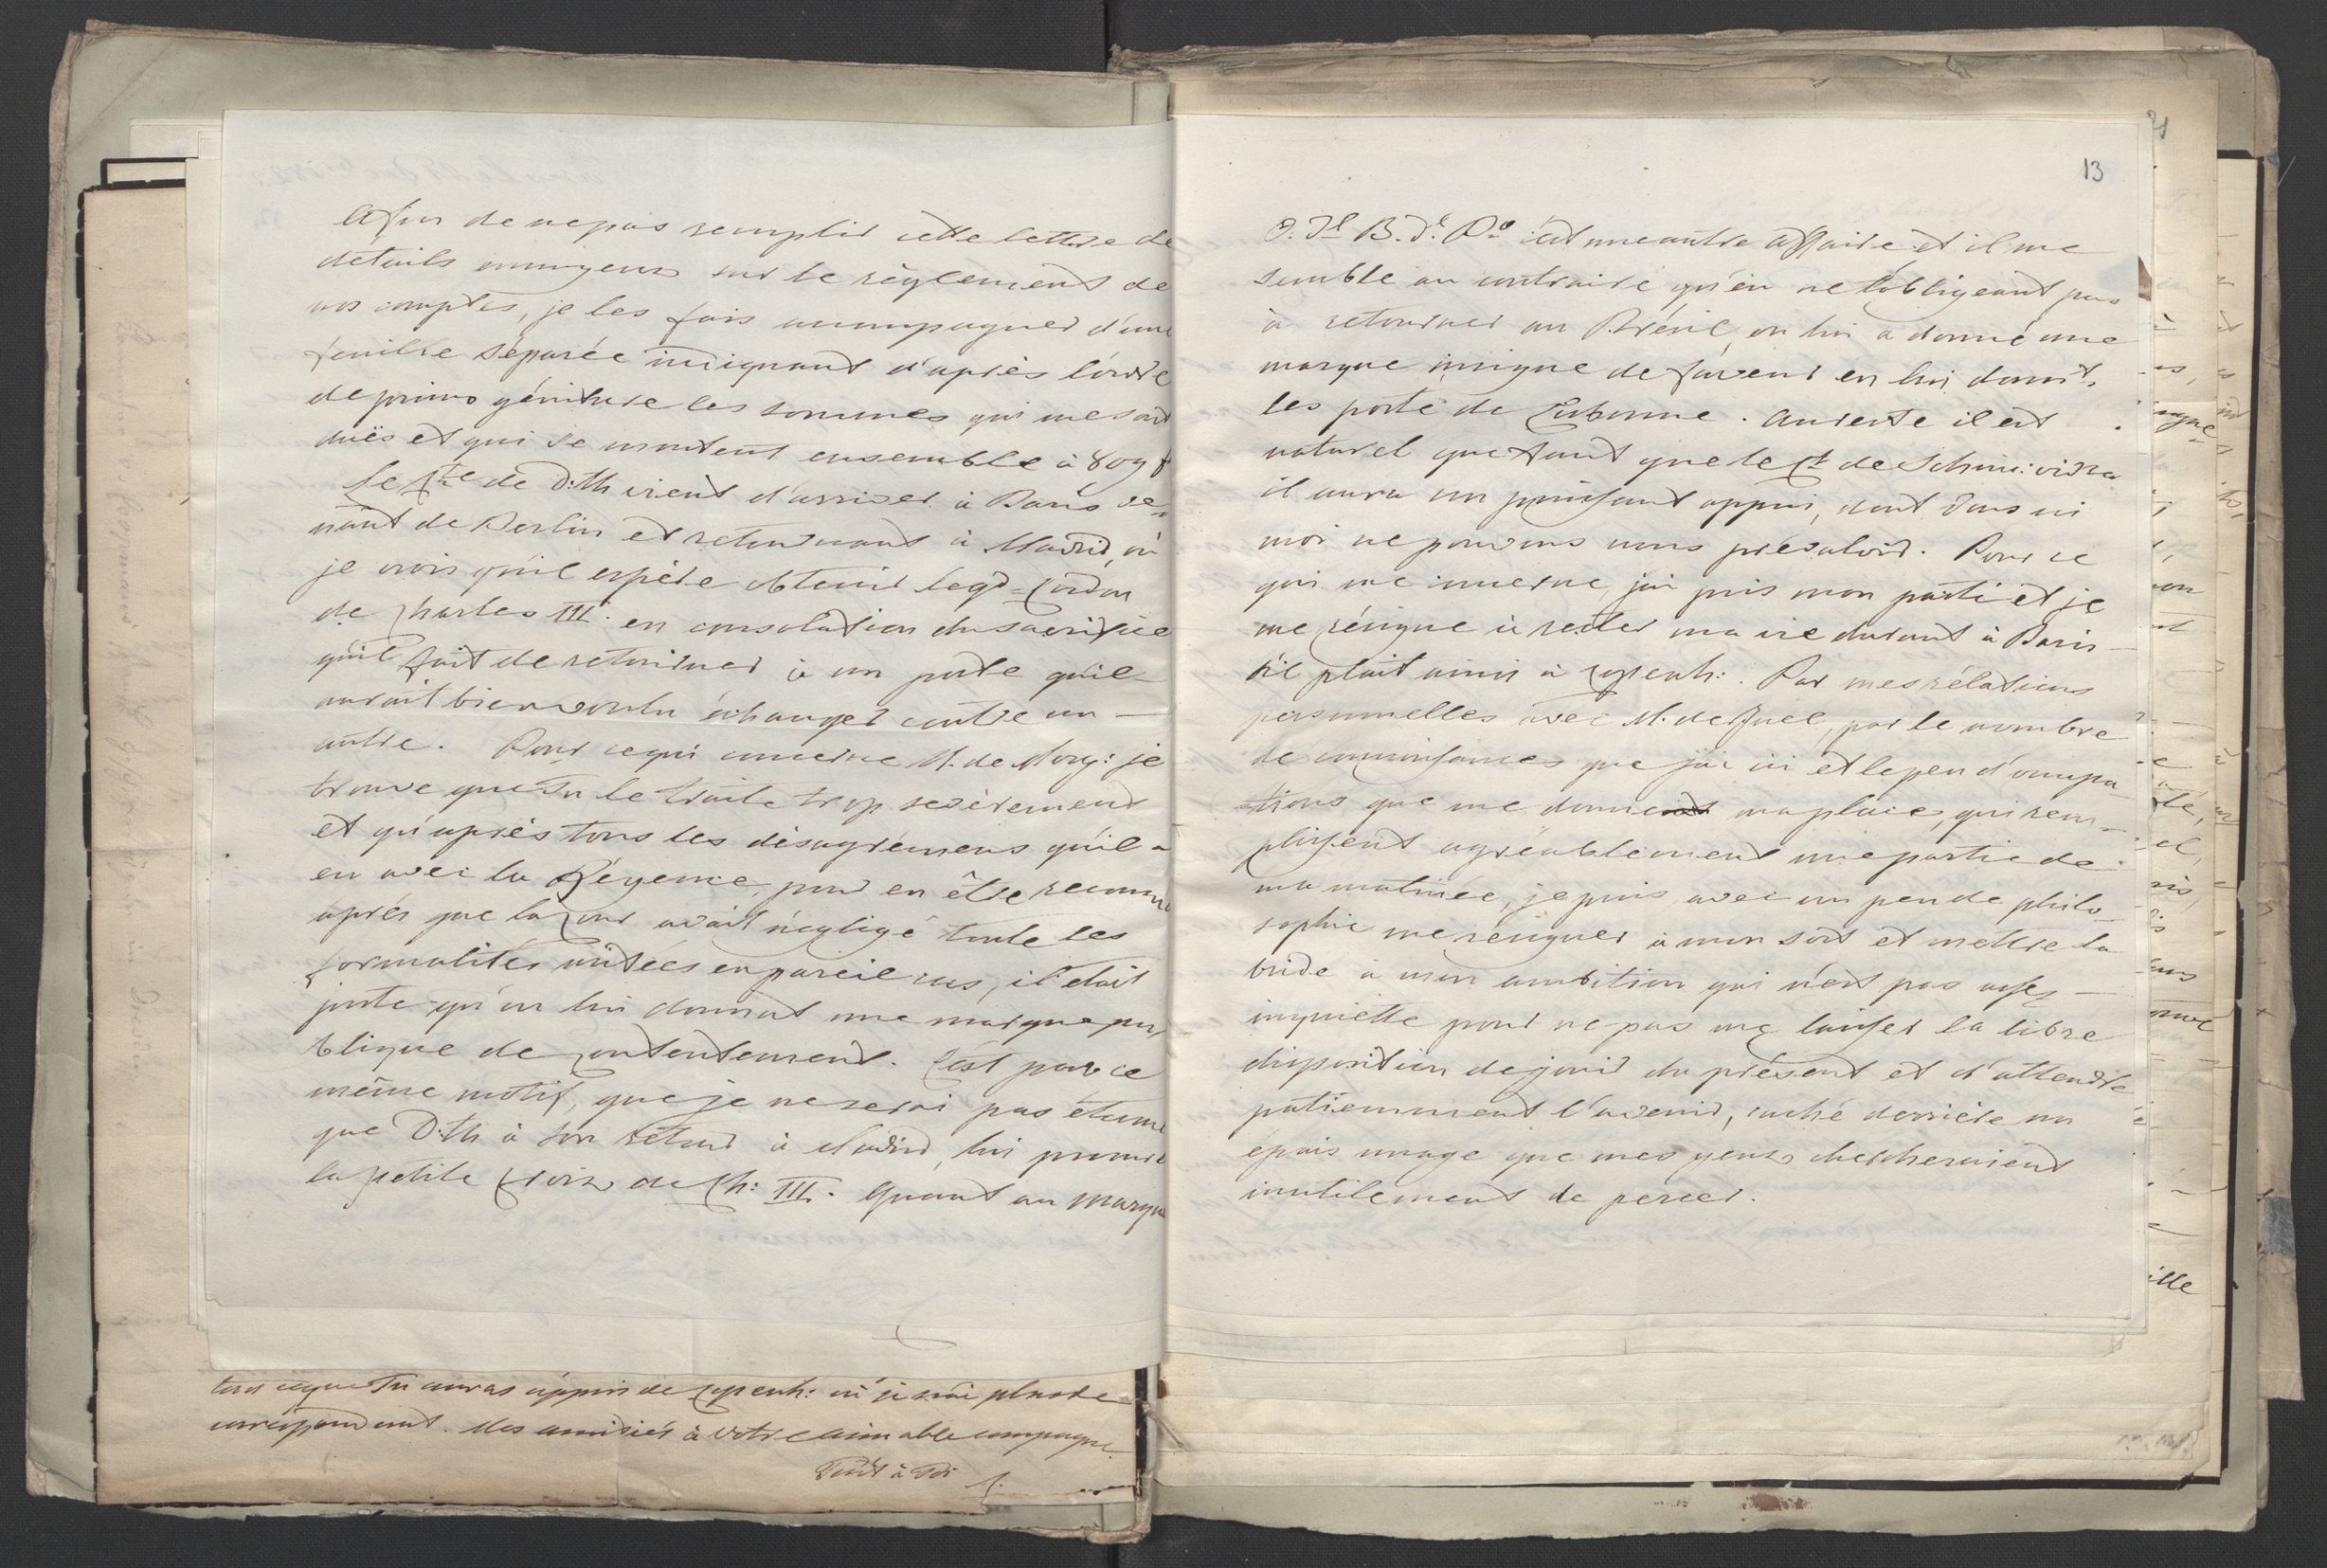 Afin de ne pas remplir cette lettre de
détails ennuyeux sur le règlement de
nos comptes, je les fais accompagner d'une
feuille séparée indiquant d'après l'ordre
de primo géniture les sommes qui me sont
duës et qui se montent ensemble à 809 f
Le Cte de D:th vient d'arriver à Paris ve-
nant de Berlin et retournant à Madrid, où
je crois qu'il espère obtenir le gd=Cordon
de Charles III. en consolation du sacrifice
qu'il fait de retourner à un poste qu'il
aurait bien voulu échanger contre un —
autre. Pour ce qui concerne M. de Borg: je
trouve que Tu le traite trop sevèrement
et qu'après tous les désagrémens qu'il a
eu avec la Régence, pour en être reconnu
après que la Cour avait négligé toute les
formalités usitées en pareil cas, il était
juste qu'on lui donnat une marque pu-
blique de Contentement. C'est par ce
même motif, que je ne serai pas étonné
que D:th à son retour à Madrid, lui procure
la petite Croix de Ch: III. Quant au marque
tout ce que Tu auras appris de Copenh: où je n'ai plus de
correspondant. Mes amitiés à votre aimable compagne
Tout à Toi
21
13
O. Jl B. c'est une autre affaire et il me
semble au contraire qu'en ne l'obligeant pas
à retourner au Brésil, on lui a donné une
marque insigne de faveur en lui donnt.
les poste de Lisbonne. Au reste il est
naturel que tant que le Ct de Schim: vivra
il aura un puissant appui, dont Vous ni
moi ne pouvons nous prévaloir. Pour ce
qui me concerne, j'ai pris mon parti et je
me résigne à rester ma vie durant à Paris —
s'il plait ainsi à Copenh:. Par mes rélations
personnelles avec M. de Juel, par le nombre
de connaissances que j'ai ici et le peu d'occupa-
tions que me donne ma place, qui rem-
plissent agréablement une partie de
ma matinée, je puis avec un peu de philo-
sophie me résigner à mon sort et mettre la
bride à mon ambition qui n'est pas assez —
inquiette pour ne pas me laisser la libre
disposition de jouir du présent et d'attendre
patiemment l'avenir, caché derrière un
épais nuage que mes yeux chercheraient
inutilement de percer.